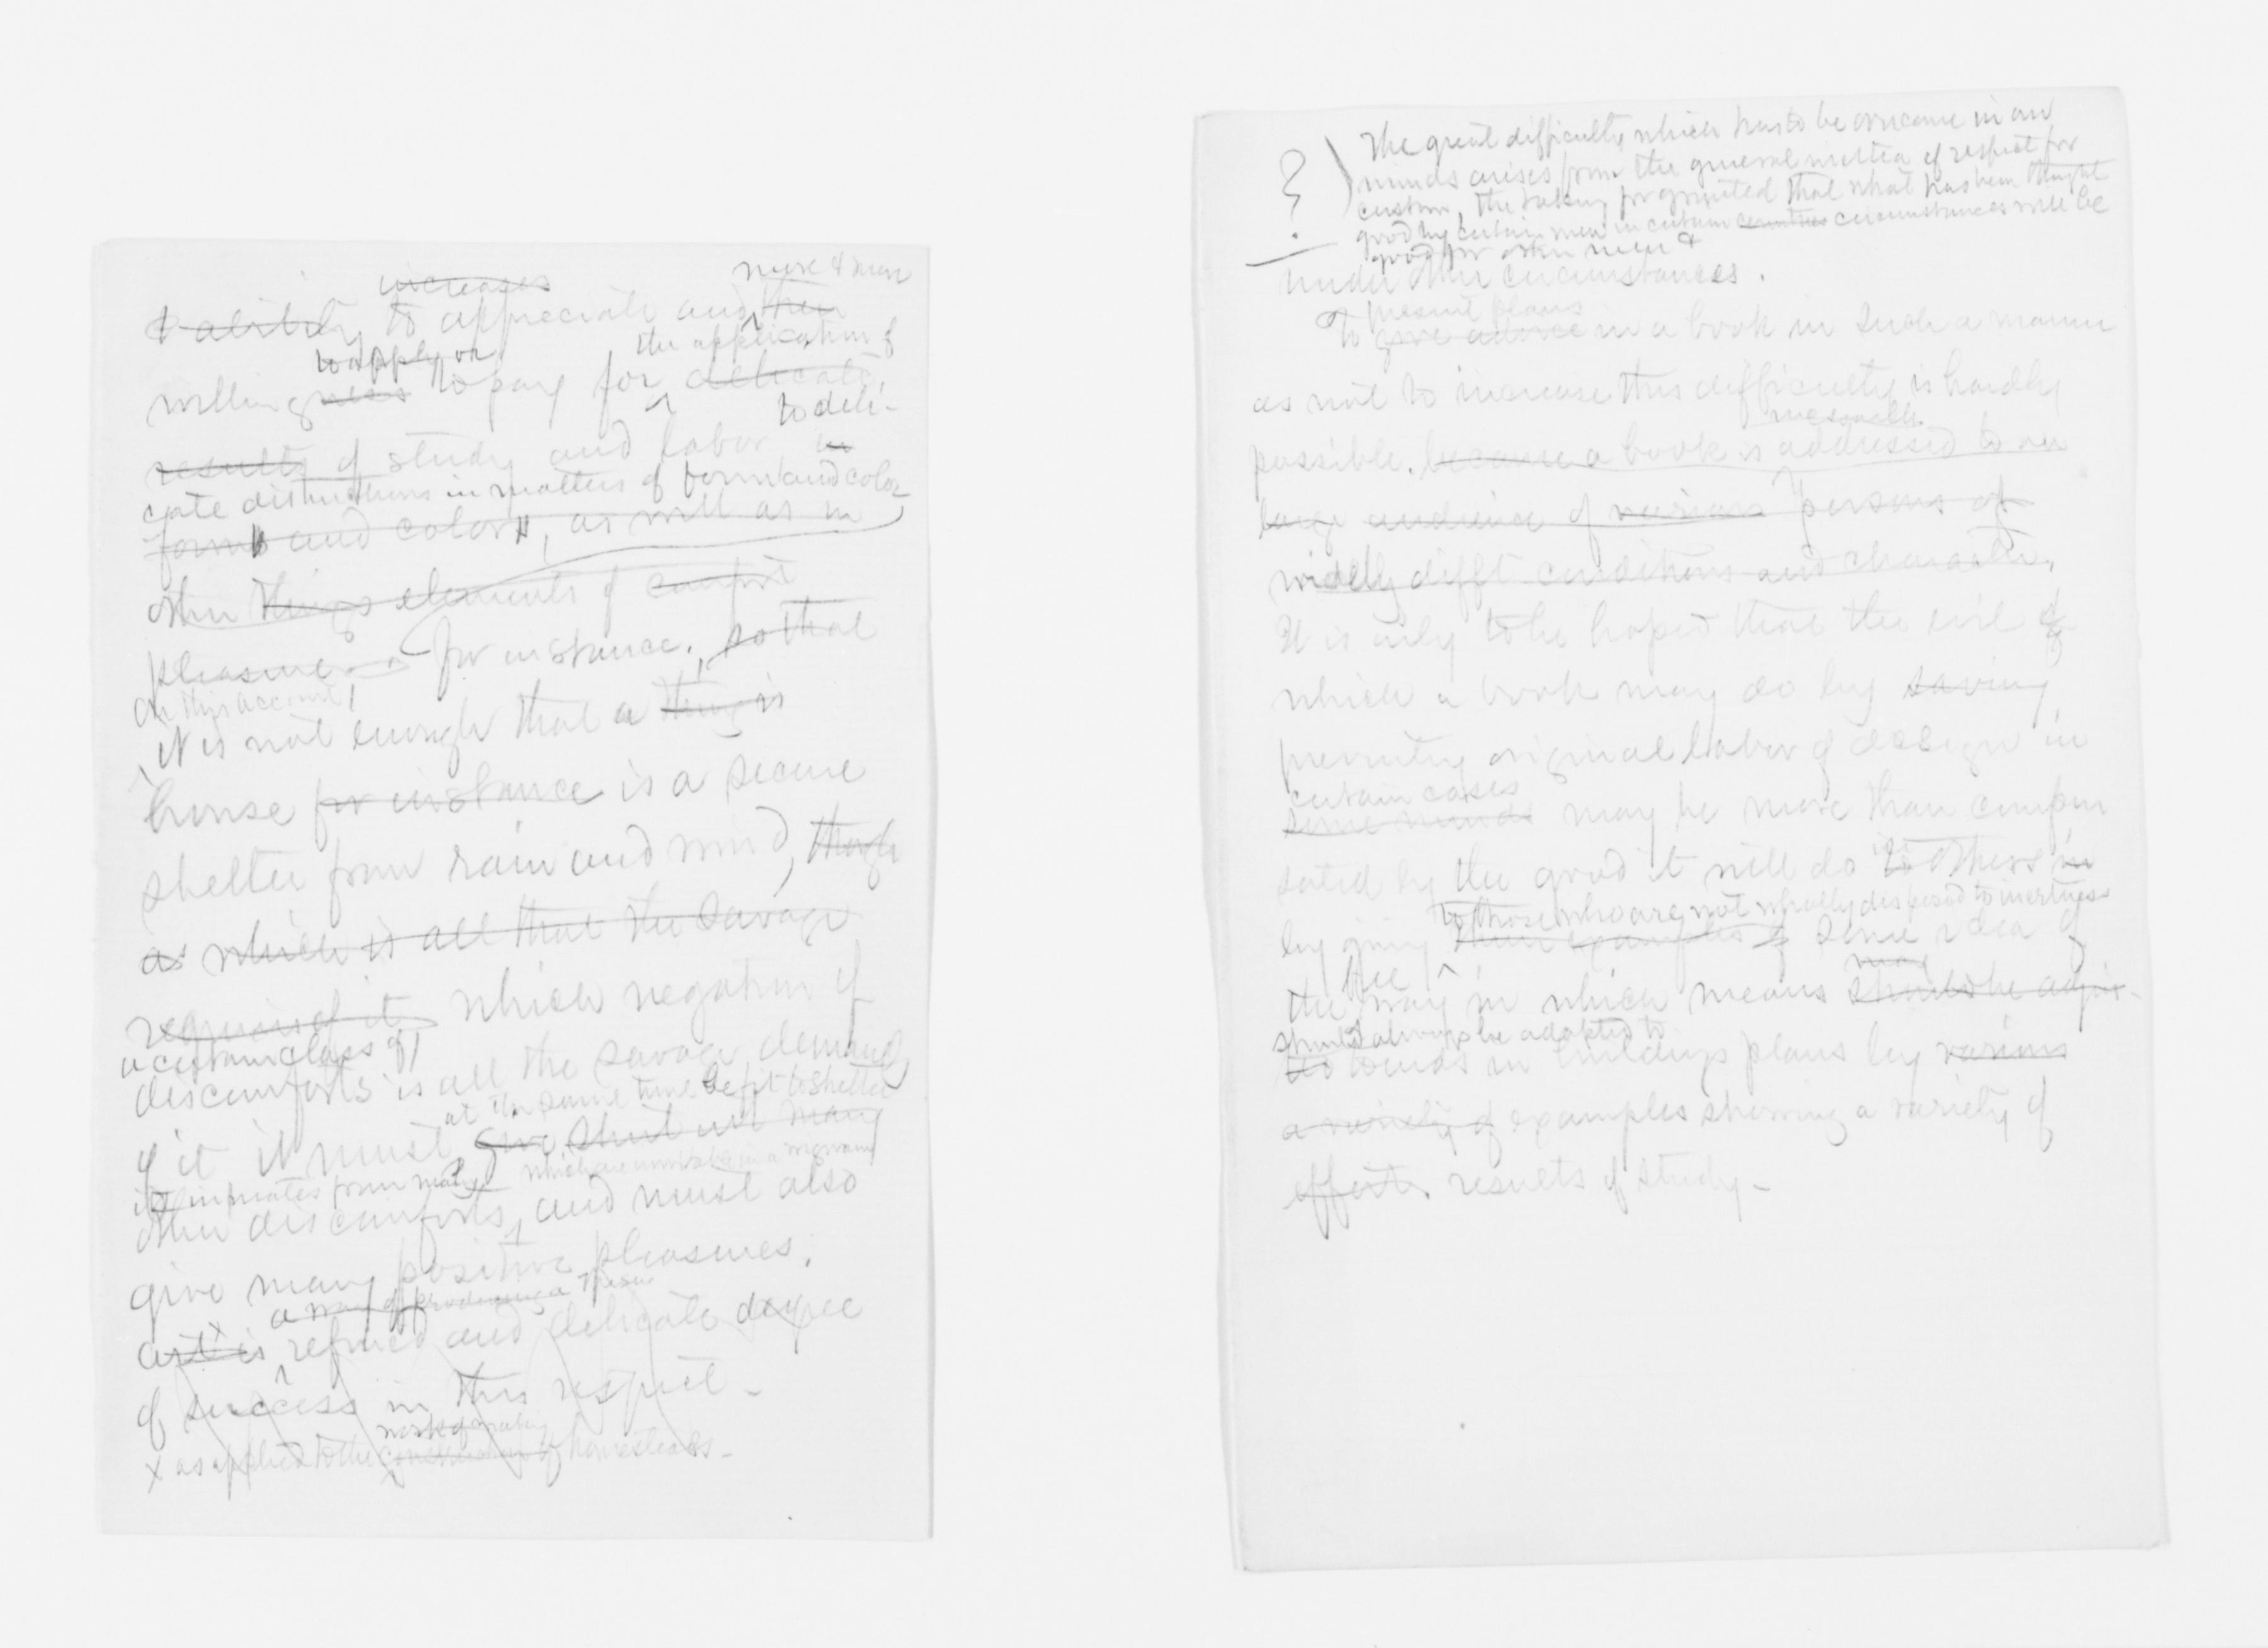 increases more & more
& ability to appreciate and then
to apply or the application of
willingness to pay for delicate
to deli-
results of study and labor in
cate distinctions in matters of form and color
forms and colors, as well as in
other things elements of comfort
pleasure for instance, so that
On this account,
it is not enough that a thing is
house for instance is a secure
shelter from rain and wind, though
as which is all that the savage
requires of it which negation of
a certain class of
discomforts is all the savage demands
at the same time be fit to shelter
of it it must give shut out many
its inmates from many which are in a
other discomforts, and must also
give many positive pleasures.
a way of producing a
art x is refined and delicate degree
of success in this respect -
work of making
x as applied to the construction of homesteads -
? The great difficulty which has to be overcome in our
minds arises from the general of respect for
custom, the taking for granted that what has been thought
good by certain men in certain countries circumstances will be
good for other men &
under other circumstances.
present plans
To give advice in a book in such a manner
as not to increase this difficulty is hardly
possible. because a book is addressed to an
large audience of various persons of
widely difft conditions and character.
It is only to be hoped that the evil of
which a book may do by saving
preventing original labor of design in
certain cases
some minds may be more than compen
sated by the good it will do to others in
to those who are not wholly disposed to inertness
by giving them examples of some idea of
the way in which means should be adjus-
should always be adapted to
to to ends in buildings plans by various
a variety of examples showing a variety of
efforts results of study -